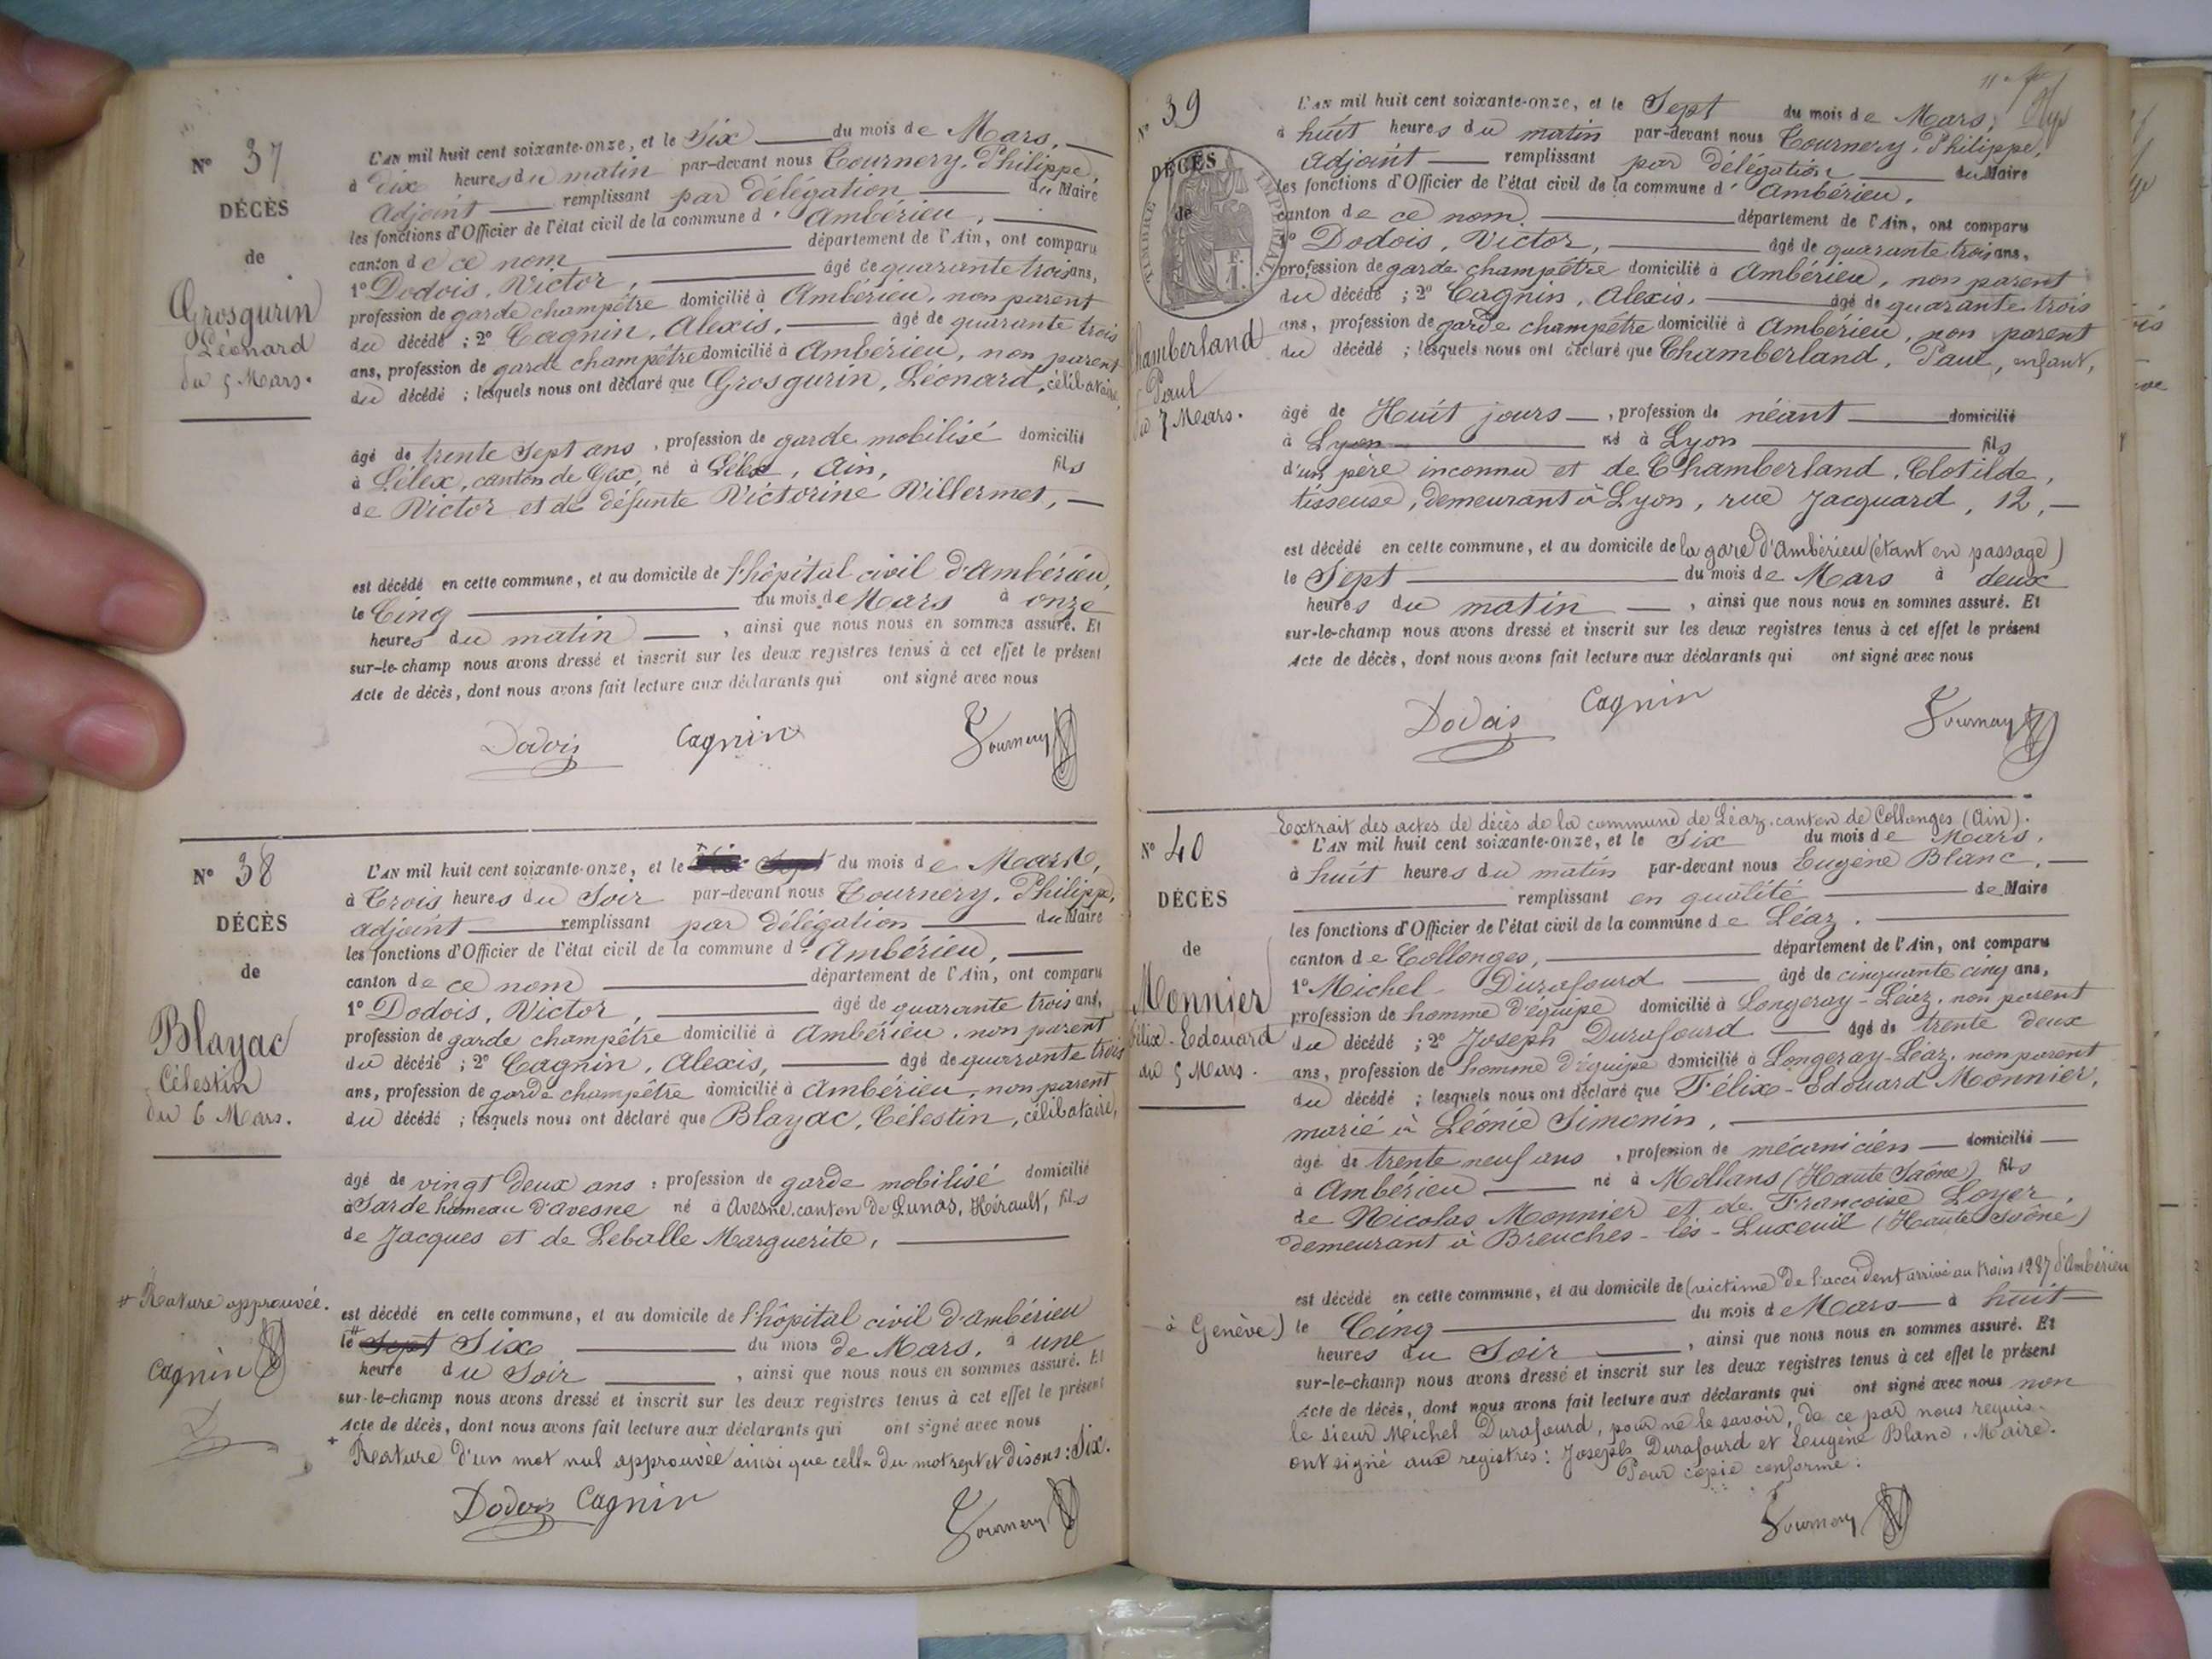 N° 37
DÉCÈS
de
Grosgurin
Léonard
du 5 Mars.
L'AN mil huit cent soixante-onze, et le Six du mois de Mars,
à dix heures du matin par-devant nous Tournery, Philippe,
adjoint remplissant par délégation du Maire
les fonctions d'Officier de l'état civil de la commune d'Ambérieu,
canton de ce nom département de l'Ain, ont comparu
1° Dodois, Victor, âgé de quarante trois ans,
profession de garde champêtre domicilié à Ambérieu, non parent
du décédé ; 2° Cagnin, Alexis, âgé de quarante trois
ans, profession de garde champêtre domicilié à Ambérieu, non parent
du décédé ; lesquels nous ont déclaré que Grosgurin, Léonard, célibataire,
âgé de trente sept ans, profession de garde mobilisé domicilié
à Lélex, canton de Gex, né à Lélex, Ain, fils
de Victor et de défunte Victorine Villermet,
est décédé en cette commune, et au domicile de l'hôpital civil d'Ambérieu,
le Cinq du mois de Mars à onze
heures du matin, ainsi que nous nous en sommes assuré. Et
sur-le-champ nous avons dressé et inscrit sur les deux registres tenus à cet effet le présent
Acte de décès, dont nous avons fait lecture aux déclarants qui ont signé avec nous
Dodois Cagnin Tournery
N° 38
DÉCÈS
de
Blayac
Célestin
du 6 Mars.
L'AN mil huit cent soixante-onze, et le Sept du mois de Mars,
à Trois heures du Soir par-devant nous Tournery, Philippe,
adjoint remplissant par délégation du Maire
les fonctions d'Officier de l'état civil de la commune d'Ambérieu,
canton de ce nom département de l'Ain, ont comparu
1° Dodois, Victor, âgé de quarante trois ans,
profession de garde champêtre domicilié à Ambérieu, non parent
du décédé ; 2° Cagnin, Alexis, âgé de quarante trois
ans, profession de garde champêtre domicilié à Ambérieu, non parent
du décédé ; lesquels nous ont déclaré que Blayac, Célestin, célibataire,
âgé de vingt deux ans, profession de garde mobilisé domicilié
à Sarde hameau d'Avesne né à Avesne, canton de Lunas, Hérault, fils
de Jacques et de Leballe Marguerite,
est décédé en cette commune, et au domicile de l'hôpital civil d'Ambérieu
le # Sept Six du mois de Mars, à une
heure du Soir, ainsi que nous nous en sommes assuré. Et
sur-le-champ nous avons dressé et inscrit sur les deux registres tenus à cet effet le présent
Acte de décès, dont nous avons fait lecture aux déclarants qui ont signé avec nous
+ Rature d'un mot nul approuvée ainsi que celle du mot sept et disons : Six.
Dodois Cagnin Tournery
# Rature approuvée.
Cagnin
N° 39
DÉCÈS
de
TIMBRE IMPÉRIAL
1 F.
Chamberland
Paul
du 7 Mars.
L'AN mil huit cent soixante-onze, et le Sept du mois de Mars,
à huit heures du matin par-devant nous Tournery, Philippe,
adjoint remplissant par délégation du Maire
les fonctions d'Officier de l'état civil de la commune d'Ambérieu,
canton de ce nom département de l'Ain, ont comparu
1° Dodois, Victor, âgé de quarante trois ans,
profession de garde champêtre domicilié à Ambérieu, non parent
du décédé ; 2° Cagnin, Alexis, âgé de quarante trois
ans, profession de garde champêtre domicilié à Ambérieu, non parent
du décédé ; lesquels nous ont déclaré que Chamberland, Paul, enfant,
âgé de Huit jours, profession de néant domicilié
à Lyon né à Lyon fils
d'un père inconnu et de Chamberland, Clotilde,
tisseuse, demeurant à Lyon, rue Jacquard, 12,
est décédé en cette commune, et au domicile de la gare d'Ambérieu (étant en passage)
le Sept du mois de Mars à deux
heures du matin, ainsi que nous nous en sommes assuré. Et
sur-le-champ nous avons dressé et inscrit sur les deux registres tenus à cet effet le présent
Acte de décès, dont nous avons fait lecture aux déclarants qui ont signé avec nous
Dodois Cagnin Tournery
N° 40
DÉCÈS
de
Monnier
Félix-Edouard
du 5 Mars.
Extrait des actes de décès de la commune de Léaz, canton de Collonges (Ain).
L'AN mil huit cent soixante-onze, et le Six du mois de Mars,
à huit heures du matin par-devant nous Eugène Blanc,
remplissant en qualité de Maire
les fonctions d'Officier de l'état civil de la commune de Léaz,
canton de Collonges, département de l'Ain, ont comparu
1° Michel Durafourd âgé de cinquante cinq ans,
profession de homme d'équipe domicilié à Longeray-Léaz, non parent
du décédé ; 2° Joseph Durafourd âgé de trente deux
ans, profession de homme d'équipe domicilié à Longeray-Léaz, non parent
du décédé ; lesquels nous ont déclaré que Félix-Edouard Monnier,
marié à Léonie Simonin,
âgé de trente neuf ans, profession de mécanicien domicilié
à Ambérieu né à Mollans (Haute Saône) fils
de Nicolas Monnier et de Françoise Loyer,
demeurant à Breuches-lès-Luxeuil (Haute Saône)
est décédé en cette commune, et au domicile de (victime de l'accident arrivé au train 1287 d'Ambérieu
à Genève) le Cinq du mois de Mars à huit
heures du Soir, ainsi que nous nous en sommes assuré. Et
sur-le-champ nous avons dressé et inscrit sur les deux registres tenus à cet effet le présent
Acte de décès, dont nous avons fait lecture aux déclarants qui ont signé avec nous non
le sieur Michel Durafourd, pour ne le savoir, de ce par nous requis.
Ont signé aux registres : Joseph Durafourd et Eugène Blanc, Maire.
Pour copie conforme :
Tournery